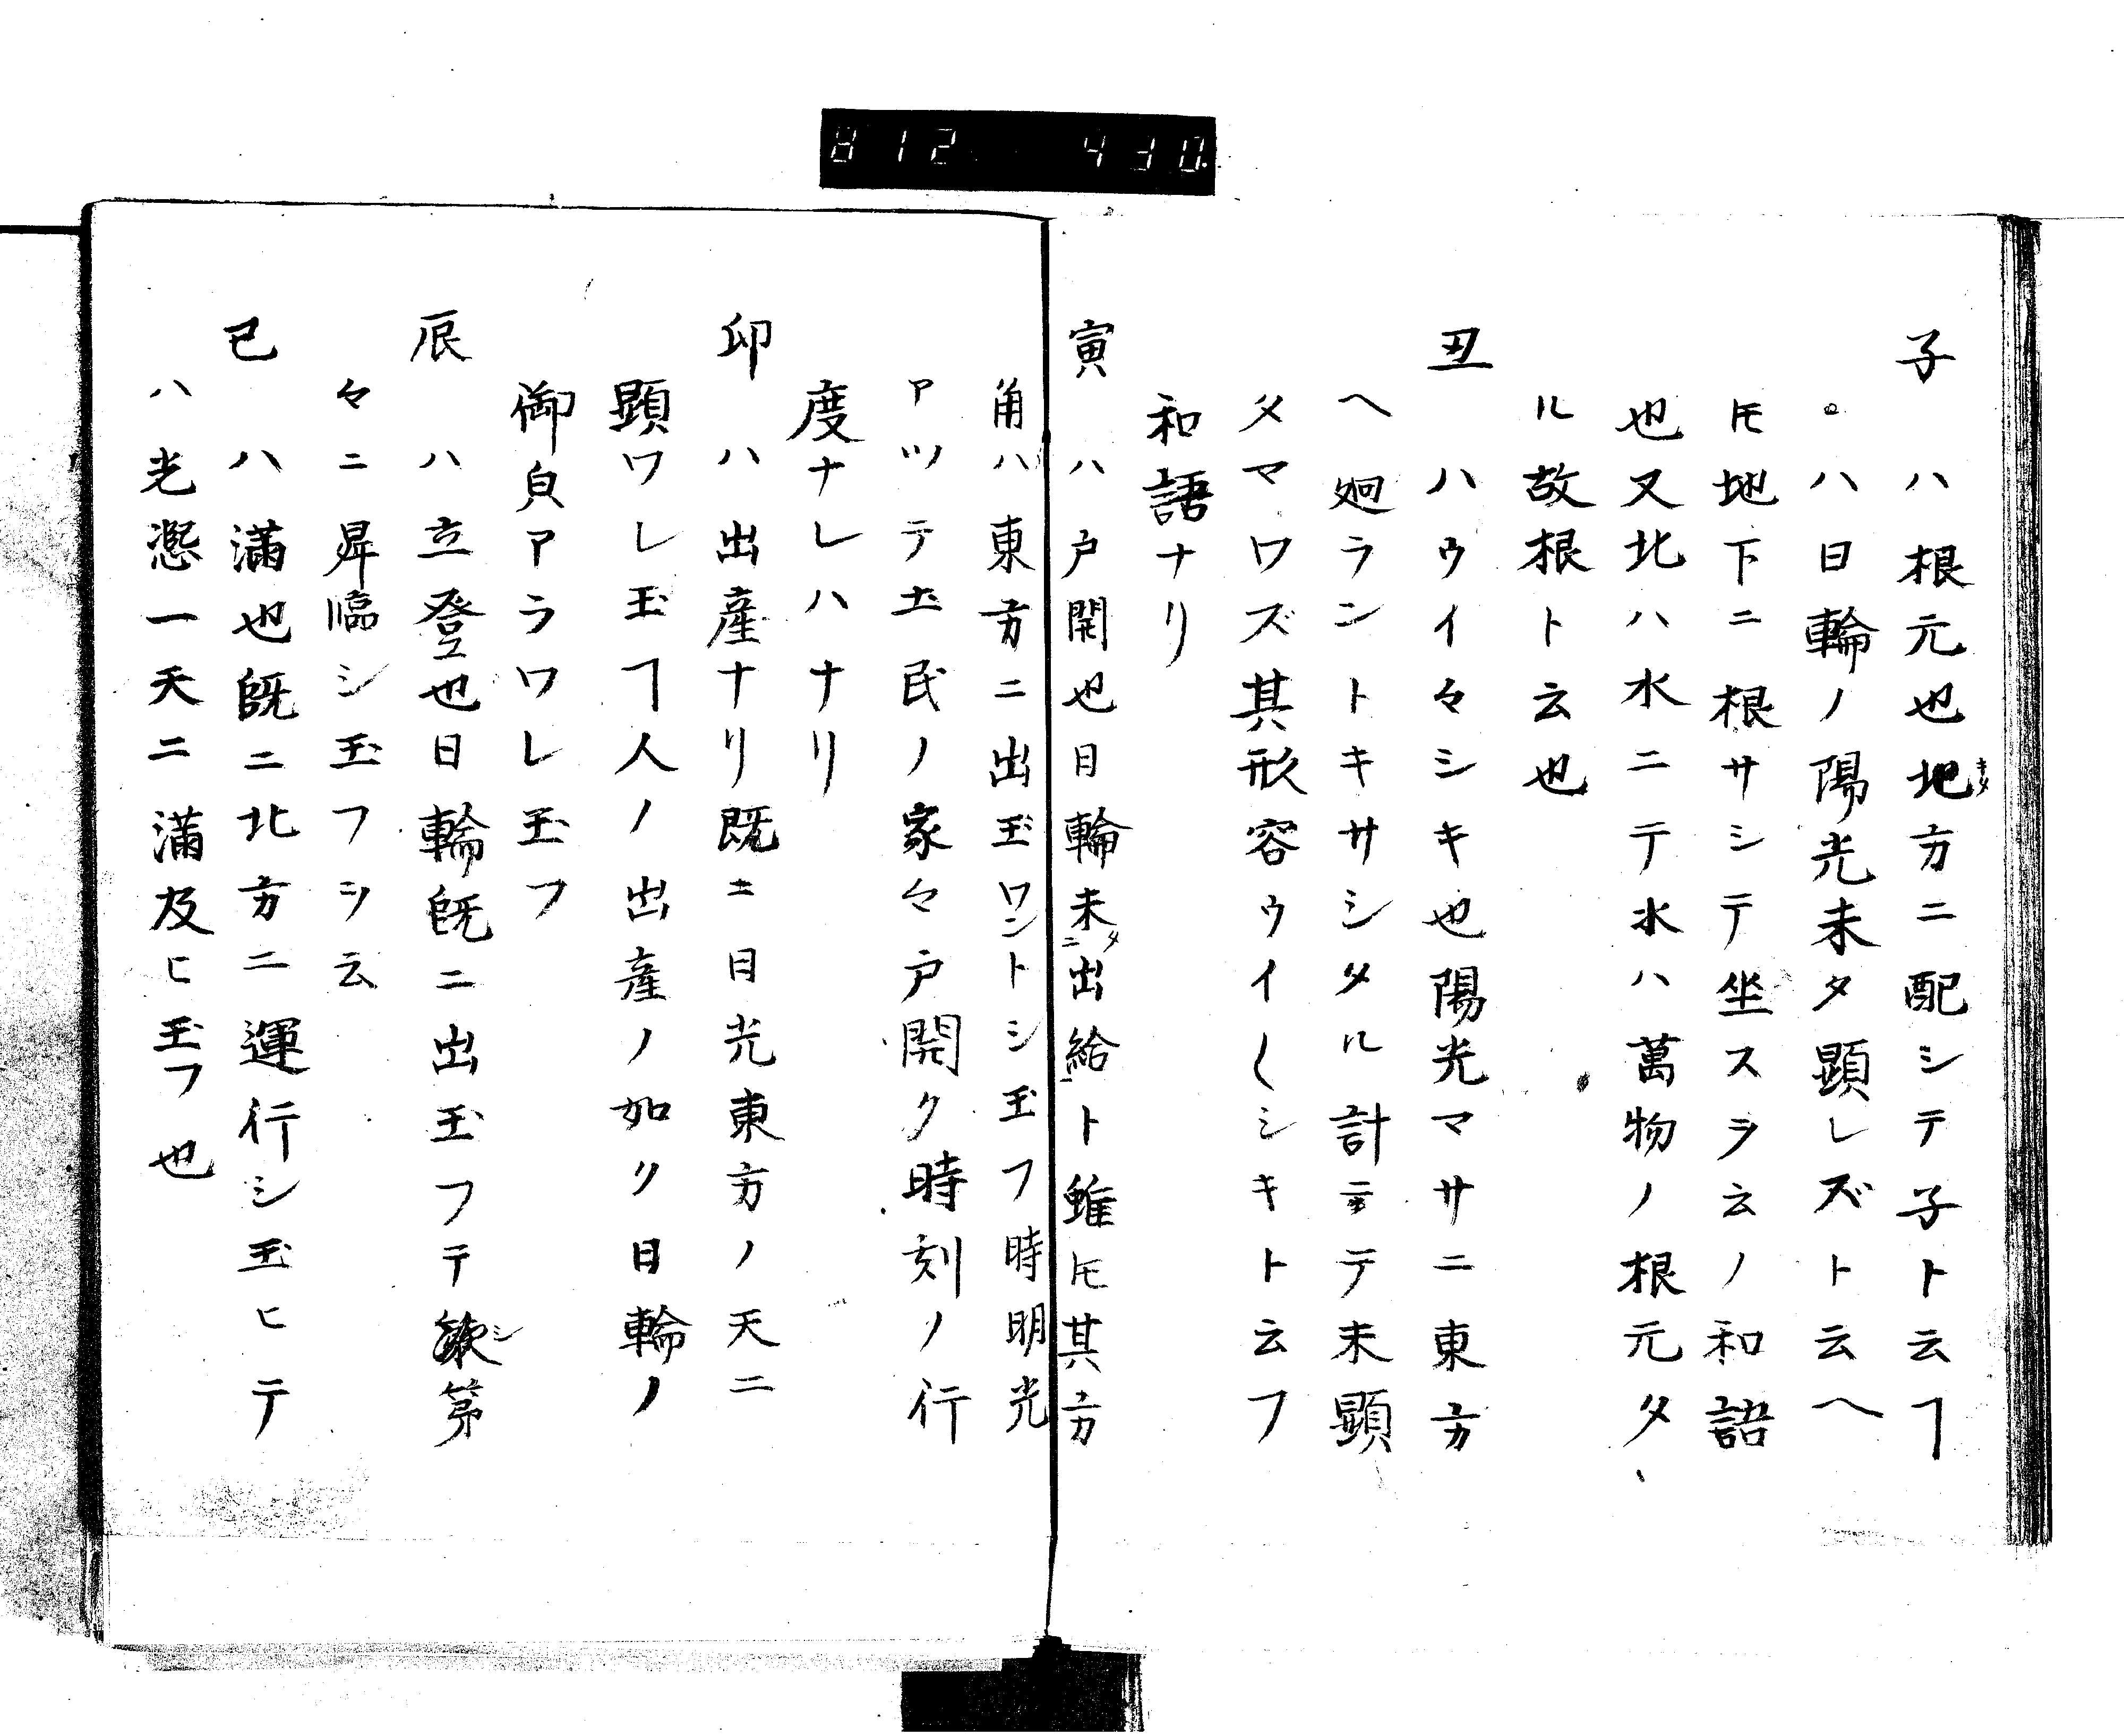 812 430
子 ハ根元也地キタ方ニ配シテ子ト云ヿ
。ハ日輪ノ陽光未タ顕レズト云ヘ
𪜈地下ニ根サシテ坐スヲ云ノ和語
也又北ハ水ニテ水ハ萬物ノ根元タ
ル故根ト云也
丑 ハウイ々シキ也陽光マサニ東方
ヘ廻ラントキサシタル計ニテ未顕
タマワズ其形容ウイ〱シキト云フ
和語ナリ
寅 ハ戸開也日輪未タ出給ト雖𪜈其方
角ハ東方ニ出玉ワントシ玉フ時明光
アツテ土民ノ家々戸開ク時刻ノ行
度ナレハナリ
卯 ハ出産ナリ既ニ日光東方ノ天ニ
顕ワレ玉フヿ人ノ出産ノ如ク日輪ノ
御㒵アラワレ玉フ
辰 ハ立登也日輪既ニ出玉フテ シ第
々ニ昇臨シ玉フヲ云
巳 ハ満也既ニ北方ニ運行シ玉ヒテ
ハ光 一天ニ満及ヒ玉フ也